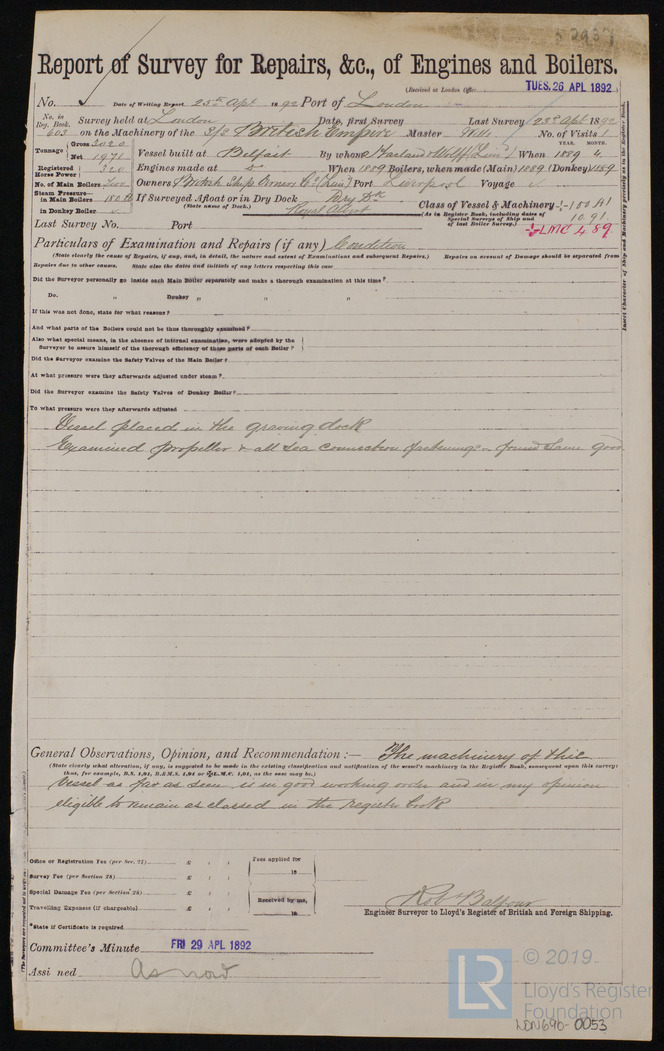 Report of Survey for Repairs, &c., of Engines and Boilers.
(Received at London Office
TUES, 26 APL 1892
No.
Date of Writing Report 25th Apl 1892 Port of London
No. in Reg. Book.
603
Survey held at London Date, first Survey Last Survey 23rd Apl 1892
on the Machinery of the S/S British Empire Master No. of Visits 1
Tonnage
Gross 3020
Net 1971
Vessel built at Belfast By whom Harland & Wolff (Lim'd) When 1889 4
YEAR. MONTH.
Registered Horse Power
320
Engines made at When 1889 Boilers, when made (Main) 1889 (Donkey) 1889
No. of Main Boilers
Owners British Ship Owners Co (Lim'd) Port Liverpool Voyage
Steam Pressure in Main Boilers 180 lb
in Donkey Boiler
If Surveyed Afloat or in Dry Dock Dry Dk
(State name of Dock.) Royal Albert
Class of Vessel & Machinery 100 A1
(As in Register Book, including dates of Special Surveys of Ship and of last Boiler Survey.)
10.91.
LMC 4.89.
Last Survey No. Port
Particulars of Examination and Repairs (if any) Condition
(State clearly the cause of Repairs, if any, and, in detail, the nature and extent of Examinations and subsequent Repairs.) Repairs on account of Damage should be separated from
Repairs due to other causes. State also the dates and initials of any letters respecting this case
Did the Surveyor personally go inside each Main Boiler separately and make a thorough examination at this time?
Do. " Donkey " " "
If this was not done, state for what reasons?
And what parts of the Boilers could not be thus thoroughly examined?
Also what special means, in the absence of internal examination, were adopted by the
Surveyor to assure himself of the thorough efficiency of those parts of each Boiler?
Did the Surveyor examine the Safety Valves of the Main Boiler?
At what pressure were they afterwards adjusted under steam?
Did the Surveyor examine the Safety Valves of Donkey Boiler?
To what pressure were they afterwards adjusted
Vessel placed in the graving dock
Examined propeller & all sea connection fastenings & found same good
Insert Character of Ship and Machinery precisely as in the Register Book.
General Observations, Opinion, and Recommendation :— The machinery of this
(State clearly what alteration, if any, is suggested to be made in the existing classification and notification of the vessel's machinery in the Register Book, consequent upon this survey:
thus, for example, B.S. 1,91, B.&M.S. 1,91 or L.M.C. 1,91, as the case may be.)
Vessel as far as seen is in good working order and in my opinion
eligible to remain as classed in the register book
Office or Registration Fee (per Sec. 27) £ : :
Survey Fee (per Section 28) £ : :
Special Damage Fee (per Section 28) £ : :
Travelling Expenses (if chargeable) £ : :
Fees applied for
18
Received by me,
18
*State if Certificate is required
Robt Balfour
Engineer Surveyor to Lloyd's Register of British and Foreign Shipping.
Committee's Minute FRI 29 APL 1892
Assigned As now
© 2019
LR
Lloyd's Register
Foundation
LDN690-0053